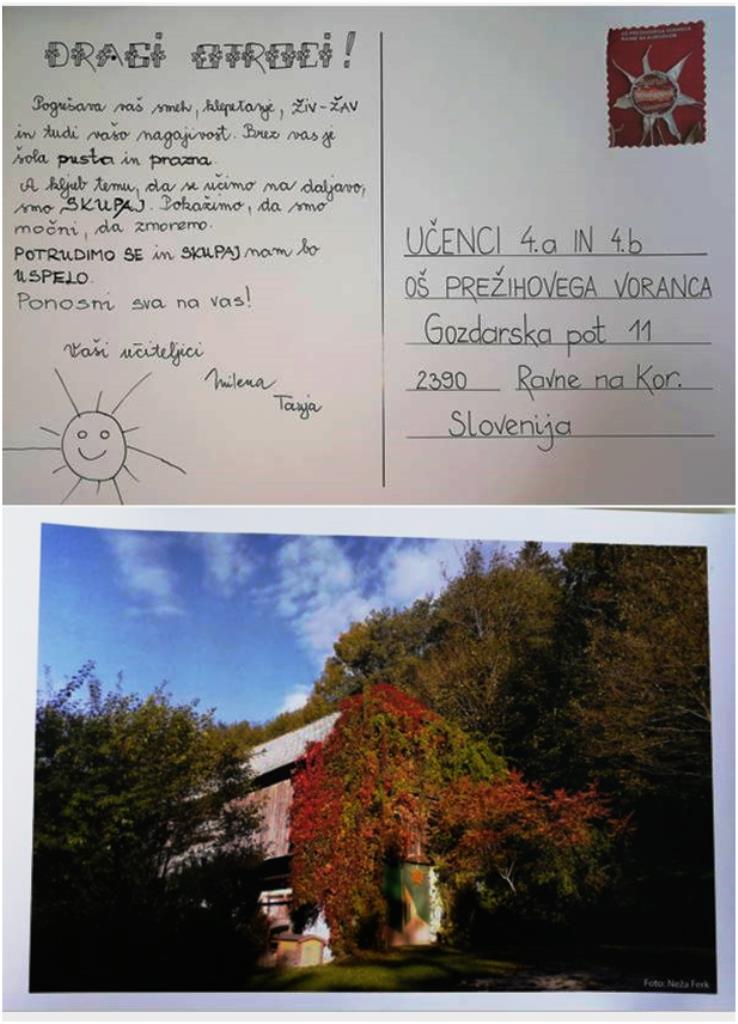 DRAGI OTROCI!
Pogrešava vaš smeh, klepetanje, ŽIV-ŽAV
in tudi vašo nagajivost. Brez vas je
šola pusta in prazna.
A kljub temu, da se učimo na daljavo,
smo SKUPAJ. Pokažimo, da smo
močni, da zmoremo.
POTRUDIMO SE in SKUPAJ nam bo
USPELO.
Ponosni sva na vas!
Vaši učiteljici
Milena
Tanja
OŠ PREŽIHOVEGA VORANCA
RAVNE NA KOROŠKEM
UČENCI 4.a IN 4.b
OŠ PREŽIHOVEGA VORANCA
Gozdarska pot 11
2390 Ravne na Kor.
Slovenija
Foto: Neža Ferk